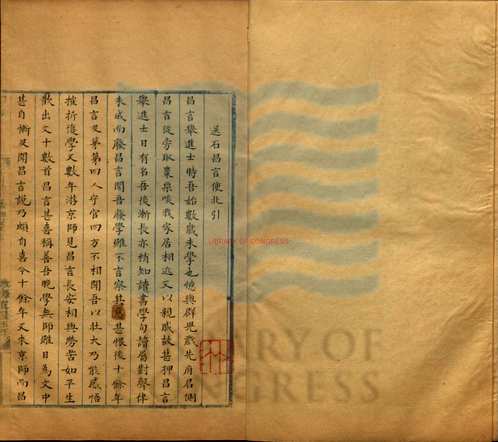 送石昌言使北引
昌言舉進士時吾始數歲未學也憶與群兒戲先府君側
昌言從旁取棗栗啖我家居相近又以親戚故甚狎昌言
舉進士日有名吾後漸長亦稍知讀書學句讀屬對聲律
未成而廢昌言聞吾廢學雖不言察其意甚恨後十餘年
昌言及第第四人守官四方不相聞吾以壯大乃能感悟
摧折復學又數年游京師見昌言長安相與勞苦如平生
歡出文十數首昌言甚喜稱善吾晚學無師雖日為文中
甚自慚及聞昌言說乃頗自喜今十餘年又來京師而昌
LIBRARY OF CONGRESS
LIBRARY OF
CONGRESS